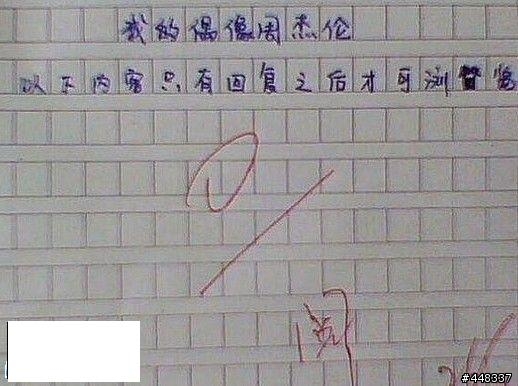 我的偶像周杰伦
以下内容只有回复之后才可浏览
0
阅
#448337